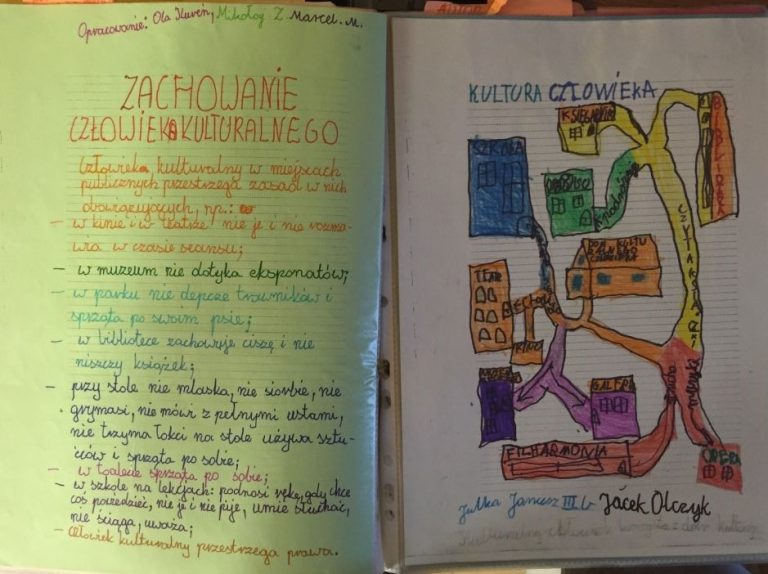 Opracowanie: Ola Kureń, Mikołaj Z. Marcel. M.
ZACHOWANIE
CZŁOWIEKA KULTURALNEGO
Człowiek kulturalny w miejscach
publicznych przestrzega zasad w nich
obowiązujących, np.:
- w kinie i w teatrze nie je i nie rozma-
wia w czasie seansu;
- w muzeum nie dotyka eksponatów;
- w parku nie depcze trawników i
sprząta po swoim psie;
- w bibliotece zachowuje ciszę i nie
niszczy książek;
- przy stole nie mlaska, nie siorbie, nie
grymasi, nie mówi z pełnymi ustami,
nie trzyma łokci na stole używa sztu-
ćców i sprząta po sobie;
- w toalecie sprząta po sobie;
- w szkole na lekcjach: podnosi rękę, gdy chce
coś powiedzieć, nie je i nie pije, umie słuchać,
nie ściąga, uważa;
- Człowiek kulturalny przestrzega prawa.
KULTURA CZŁOWIEKA
KSIĘGARNIA
BIBLIOTEKA
SZKOŁA
CZYTA KSIĄŻKI
DOM KULTU
TEATR
KINO
GALERIA
FILHARMONIA
OPERA
muzyki
Julka Janusz III b Jacek Olczyk